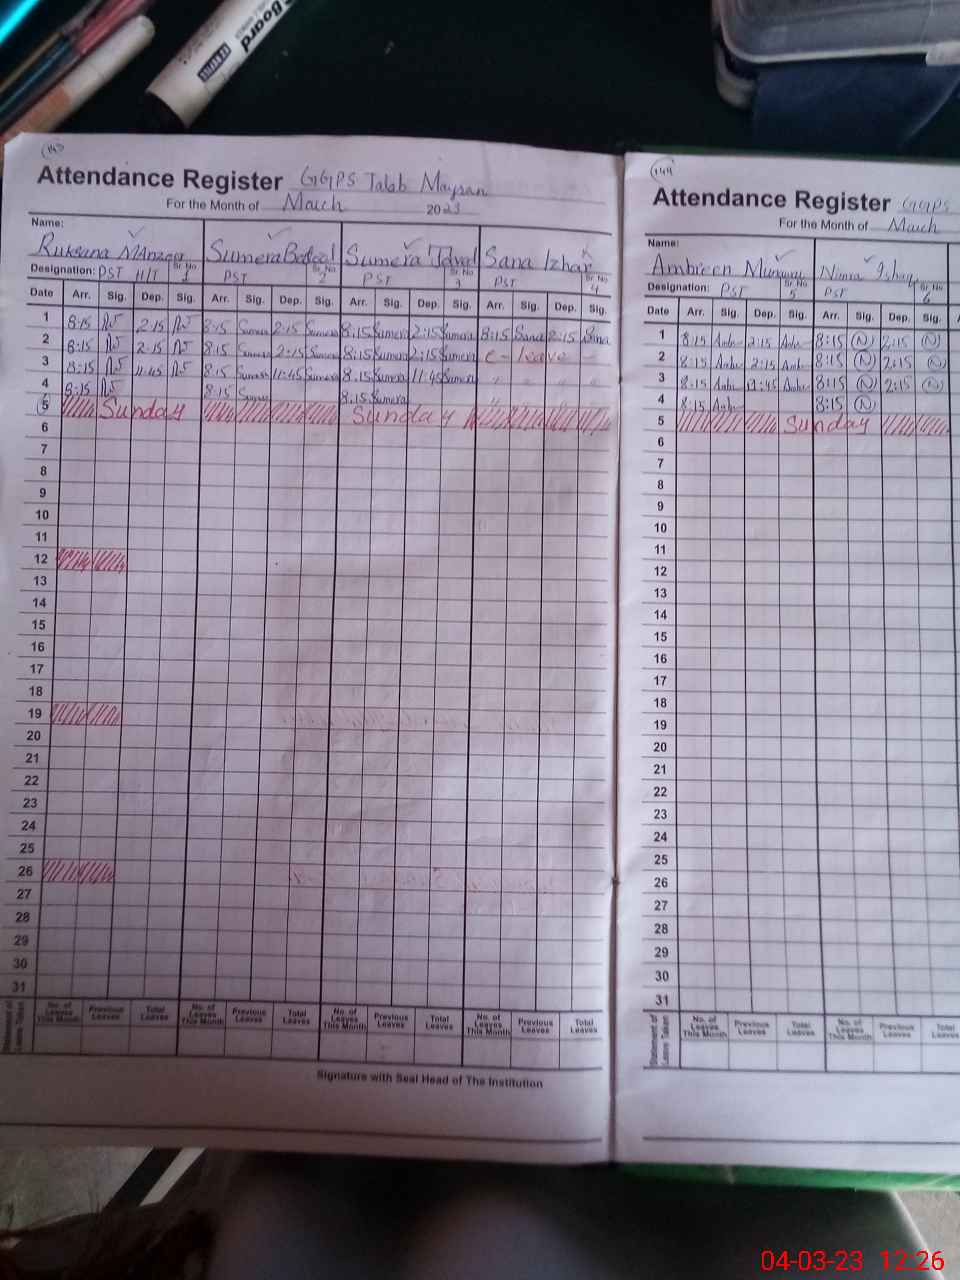 Board
Attendance Register GGPS Talab Maysan
For the Month of March 2023
Name:
Ruksana Manzoor Sumera Batool Sumera Javed Sana Izhar
Designation: PST H/T Sr. No 1 PST Sr. No 2 PST Sr. No 3 PST Sr. No 4
Date Arr. Sig. Dep. Sig. Arr. Sig. Dep. Sig. Arr. Sig. Dep. Sig. Arr. Sig. Dep. Sig.
1 8:15 2:15 8:15 Sumera 2:15 Sumera 8:15 Sumera 2:15 Sumera 8:15 Sana 2:15 Sana
2 8:15 2:15 8:15 Sumera 2:15 Sumera 8:15 Sumera 2:15 Sumera C - leave
3 8:15 11:45 8:15 Sumera 11:45 Sumera 8:15 Sumera 11:45 Sumera " " "
4 8:15 8:15 Sumera 8:15 Sumera
5 Sunday Sunday
6
7
8
9
10
11
12
13
14
15
16
17
18
19
20
21
22
23
24
25
26
27
28
29
30
31
Statement of Leave Taken No. of Leaves This Month Previous Leaves Total Leaves No. of Leaves This Month Previous Leaves Total Leaves No. of Leaves This Month Previous Leaves Total Leaves No. of Leaves This Month Previous Leaves Total Leaves
Signature with Seal Head of The Institution
144
Attendance Register GGPS
For the Month of March
Name:
Ambreen Nimra Ishaq
Designation: PST Sr. No 5 PST Sr. No 6
Date Arr. Sig. Dep. Sig. Arr. Sig. Dep. Sig.
1 8:15 Amb 2:15 Amb 8:15 N 2:15 N
2 8:15 Amb 2:15 Amb 8:15 N 2:15 N
3 8:15 Amb Amb 8:15 N 2:15 N
4 8:15 Amb 8:15 N
5 Sunday
6
7
8
9
10
11
12
13
14
15
16
17
18
19
20
21
22
23
24
25
26
27
28
29
30
31
Statement of Leave Taken No. of Leaves This Month Previous Leaves Total Leaves No. of Leaves This Month Previous Leaves Total Leaves
04-03-23 12:26